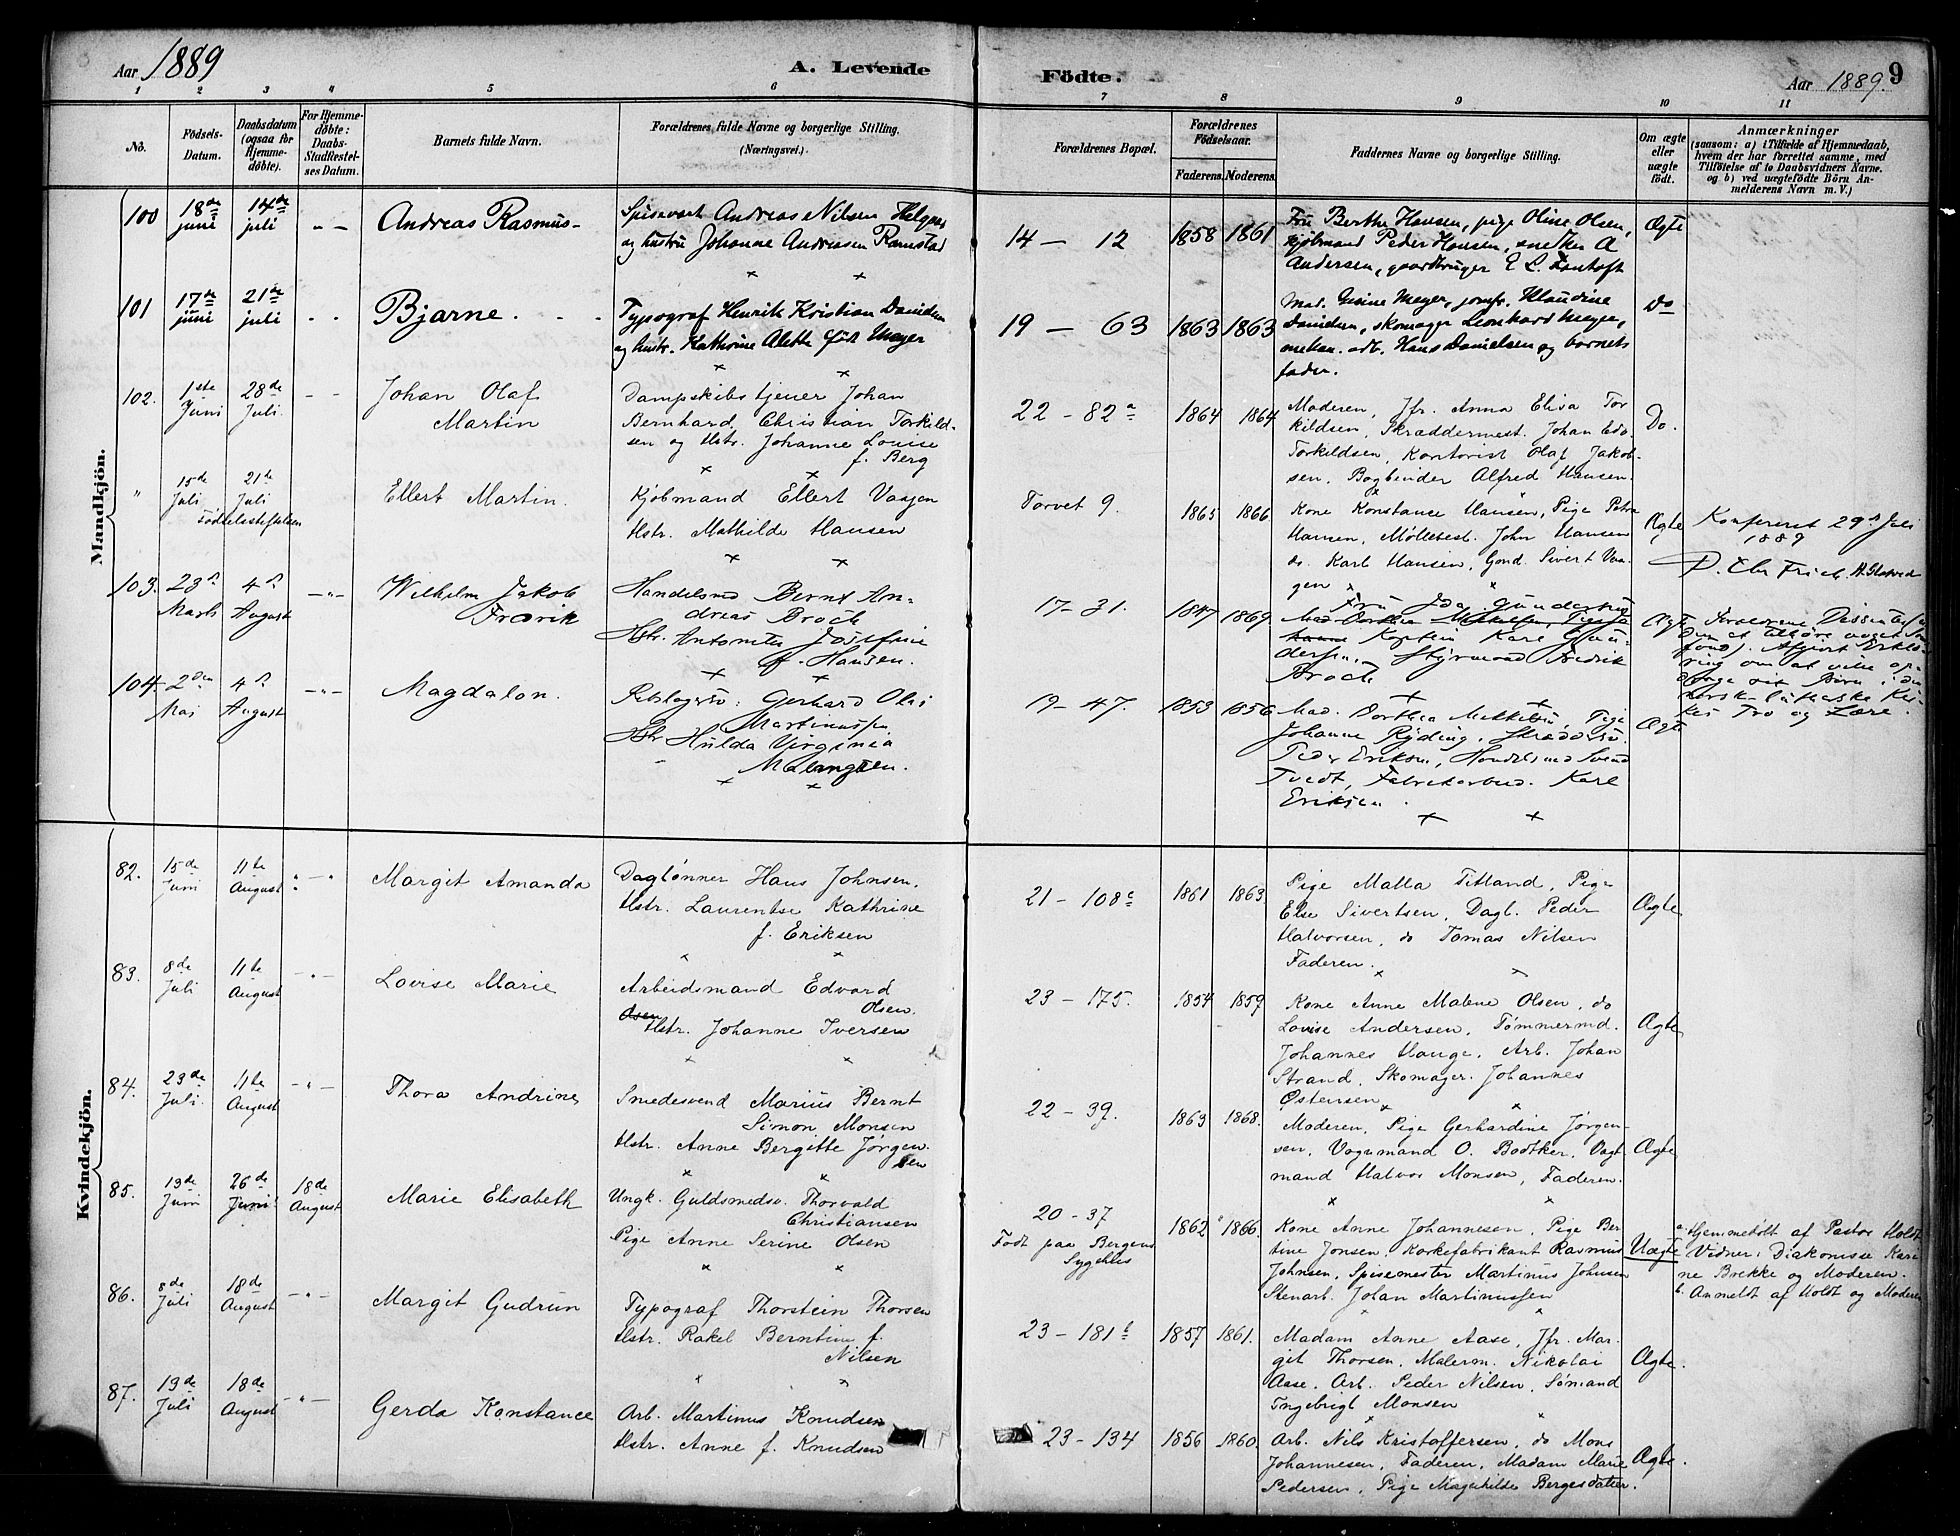 Aar 1889
A. Levende
Födte.
Aar 1889.
9
1 2 3 4 5 6 7 8 9 10 11
No.
Födsels-
Datum.
Daabsdatum
(ogsaa for
Hjemme-
døbte).
For Hjemme-
døbte:
Daabs-
Stadfæstel-
ses Datum.
Barnets fulde Navn.
Forældrenes fulde Navne og borgerlige Stilling.
(Næringsvei.)
Forældrenes Bopæl.
Forældrenes
Födselsaar.
Faderens. Moderens.
Faddernes Navne og borgerlige Stilling.
Om ægte
eller
uægte
födt.
Anmærkninger
(saasom: a) i Tilfælde af Hjemmedaab,
hvem der har forrettet samme, med
Tilföielse af to Daabsvidners Navne.
og b) ved uægtefödte Börn An-
melderens Navn m. V.)
Mandkjön.
100 18de juni 14de juli Andreas Rasmus-
Spisevært Andreas Nilsen Helgnes
og hustru Johanne Andreasen Ramstad
14 — 12 1858 1861
Fru Berthe Hansen, pige Oline Olsen,
kjøbmand Peder Hansen, snedker A
Andersen, gaardbruger E L. Fantoft
Ægte
101 17de juni 21de juli Bjarne.
Typograf Henrik Kristian Danielsen
og hustr. Kathrine Alette født Meyer
19 — 63 1863 1863
Mad. Gurine Meyer, jomfr. Klaudine
Danielsen, skomager Leonhard Meyer,
Hans Danielsen og barnets
fader.
Do
102. 1ste Juni 28de Juli. Johan Olaf
Martin
Dampskibstjener Johan
Bernhard Christian Torkild-
sen og Hstr. Johanne Louise
f. Berg
22 - 82a 1864 1864
Moderen, Jfr. Anna Elisa Tor
kildsen, Skræddermest. Johan Edv.
Torkildsen, Kontorist Olaf Jakob-
sen, Bogbinder Alfred Hansen.
Do.
" 15de Juli 21de Juli
Fødselsstiftelsen
Ellert Martin.
Kjøbmand Ellert Vaagen
Hstr. Mathilde Hansen
Torvet 9. 1865 1866
Kone Konstance Hansen, Pige Petra
Hansen, Møllebest. John Hansen
do. Karl Hansen, Gond. Sivert Vaa-
gen
Ægte
Konfereret 29de Juli
1889
103. 23de Marts 4de August Wilhelm Jakob
Fredrik
Handelsmd Bernt An-
dreas Broch
Hstr. Antonette Josefine
f. Hansen.
17 - 31. 1847 1869
Fru Ida Gundersen
Kaptein Karl Gun-
dersen, Styrmand Fredrik
Broch
Ægte
104. 2den Mai 4de August Magdalon.
Rebslagersv. Gerhard Olai
Martinussen
Hstr Hulda Virginia
19 - 47. 1853 1856
Mad. Dorthea Mikkelsen, Pige
Johanne Ryding, Skræddersv.
Peder Eriksen, Handelsmd Svend
Tvedt, Fabrikarbeid. Karl
Eriksen.
Ægte
Kvindekjön.
82. 15de Juni 11te August Margit Amanda
Daglønner Hans Johnsen,
Hstr. Laurentse Kathrine
f. Eriksen
21 - 108c 1861 1863
Pige Malla Titland, Pige
Else Sivertsen, Dagl. Peder
Halvorsen, do Tomas Nilsen
Faderen.
Ægte
83. 8de Juli 11te August Lovise Marie
Arbeidsmand Edvard
Olsen.
Hstr. Johanne Iversen
23 - 175. 1854 1859
Kone Anne Malene Olsen, do
Lovise Andersen, Tømmermd.
Johannes Hauge, Arb. Johan
Strand, Skomager. Johannes
Østensen
Ægte
84. 23de Juli. 11te August Thora Andrine
Smedesvend Marius Bernt
Simon Monsen
Hstr. Anne Bergitte Jørgen-
sen
22 - 39. 1863 1868.
Moderen, Pige Gerhardine Jørgen-
sen, Vognmand O. Bødtker, Vagt
mand Halvor Monsen, Faderen.
Ægte
85. 19de Juni 26de Juni 18de August Marie Elisabeth
Ungk. Guldsmedsv. Thorvald
Christiansen
Pige Anne Serine Olsen
20 - 37
Født paa Bergens
Sygehus
1862 1866
Kone Anne Johannesen, Pige Ber
tine Jonsen, Korkefabrikant Rasmus
Johnsen, Spisemester Martinus Johnsen
Stenarb. Johan Martinussen
Uægte
a. Hjemmedøbt af Pastor Holdt
Vidner: Diakonisse Kari
ne Brekke og Moderen.
b. Anmeldt af Holdt og Moderen
86. 8de Juli 18de August Margit Gudrun
Typograf Thorstein Thorsen
Hstr. Rakel Berntine f.
Nilsen
23 - 181b 1857 1861.
Madam Anne Aase, Jfr. Mar-
git Thorsen, Malerm. Nikolai
Aase, Arb. Peder Nilsen, Sømand
Ingebrigt Monsen
Ægte.
87. 19de Juli 18de August Gerda Konstance
Arb. Martinus Knudsen
Hstr. Anne f. Knudsen
23 - 134 1856 1860.
Arb. Nils Kristoffersen, do Mons
Johannesen, Faderen, Madam Marie
Pedersen, Pige Magnhilde Bergesdatter.
Ægte.